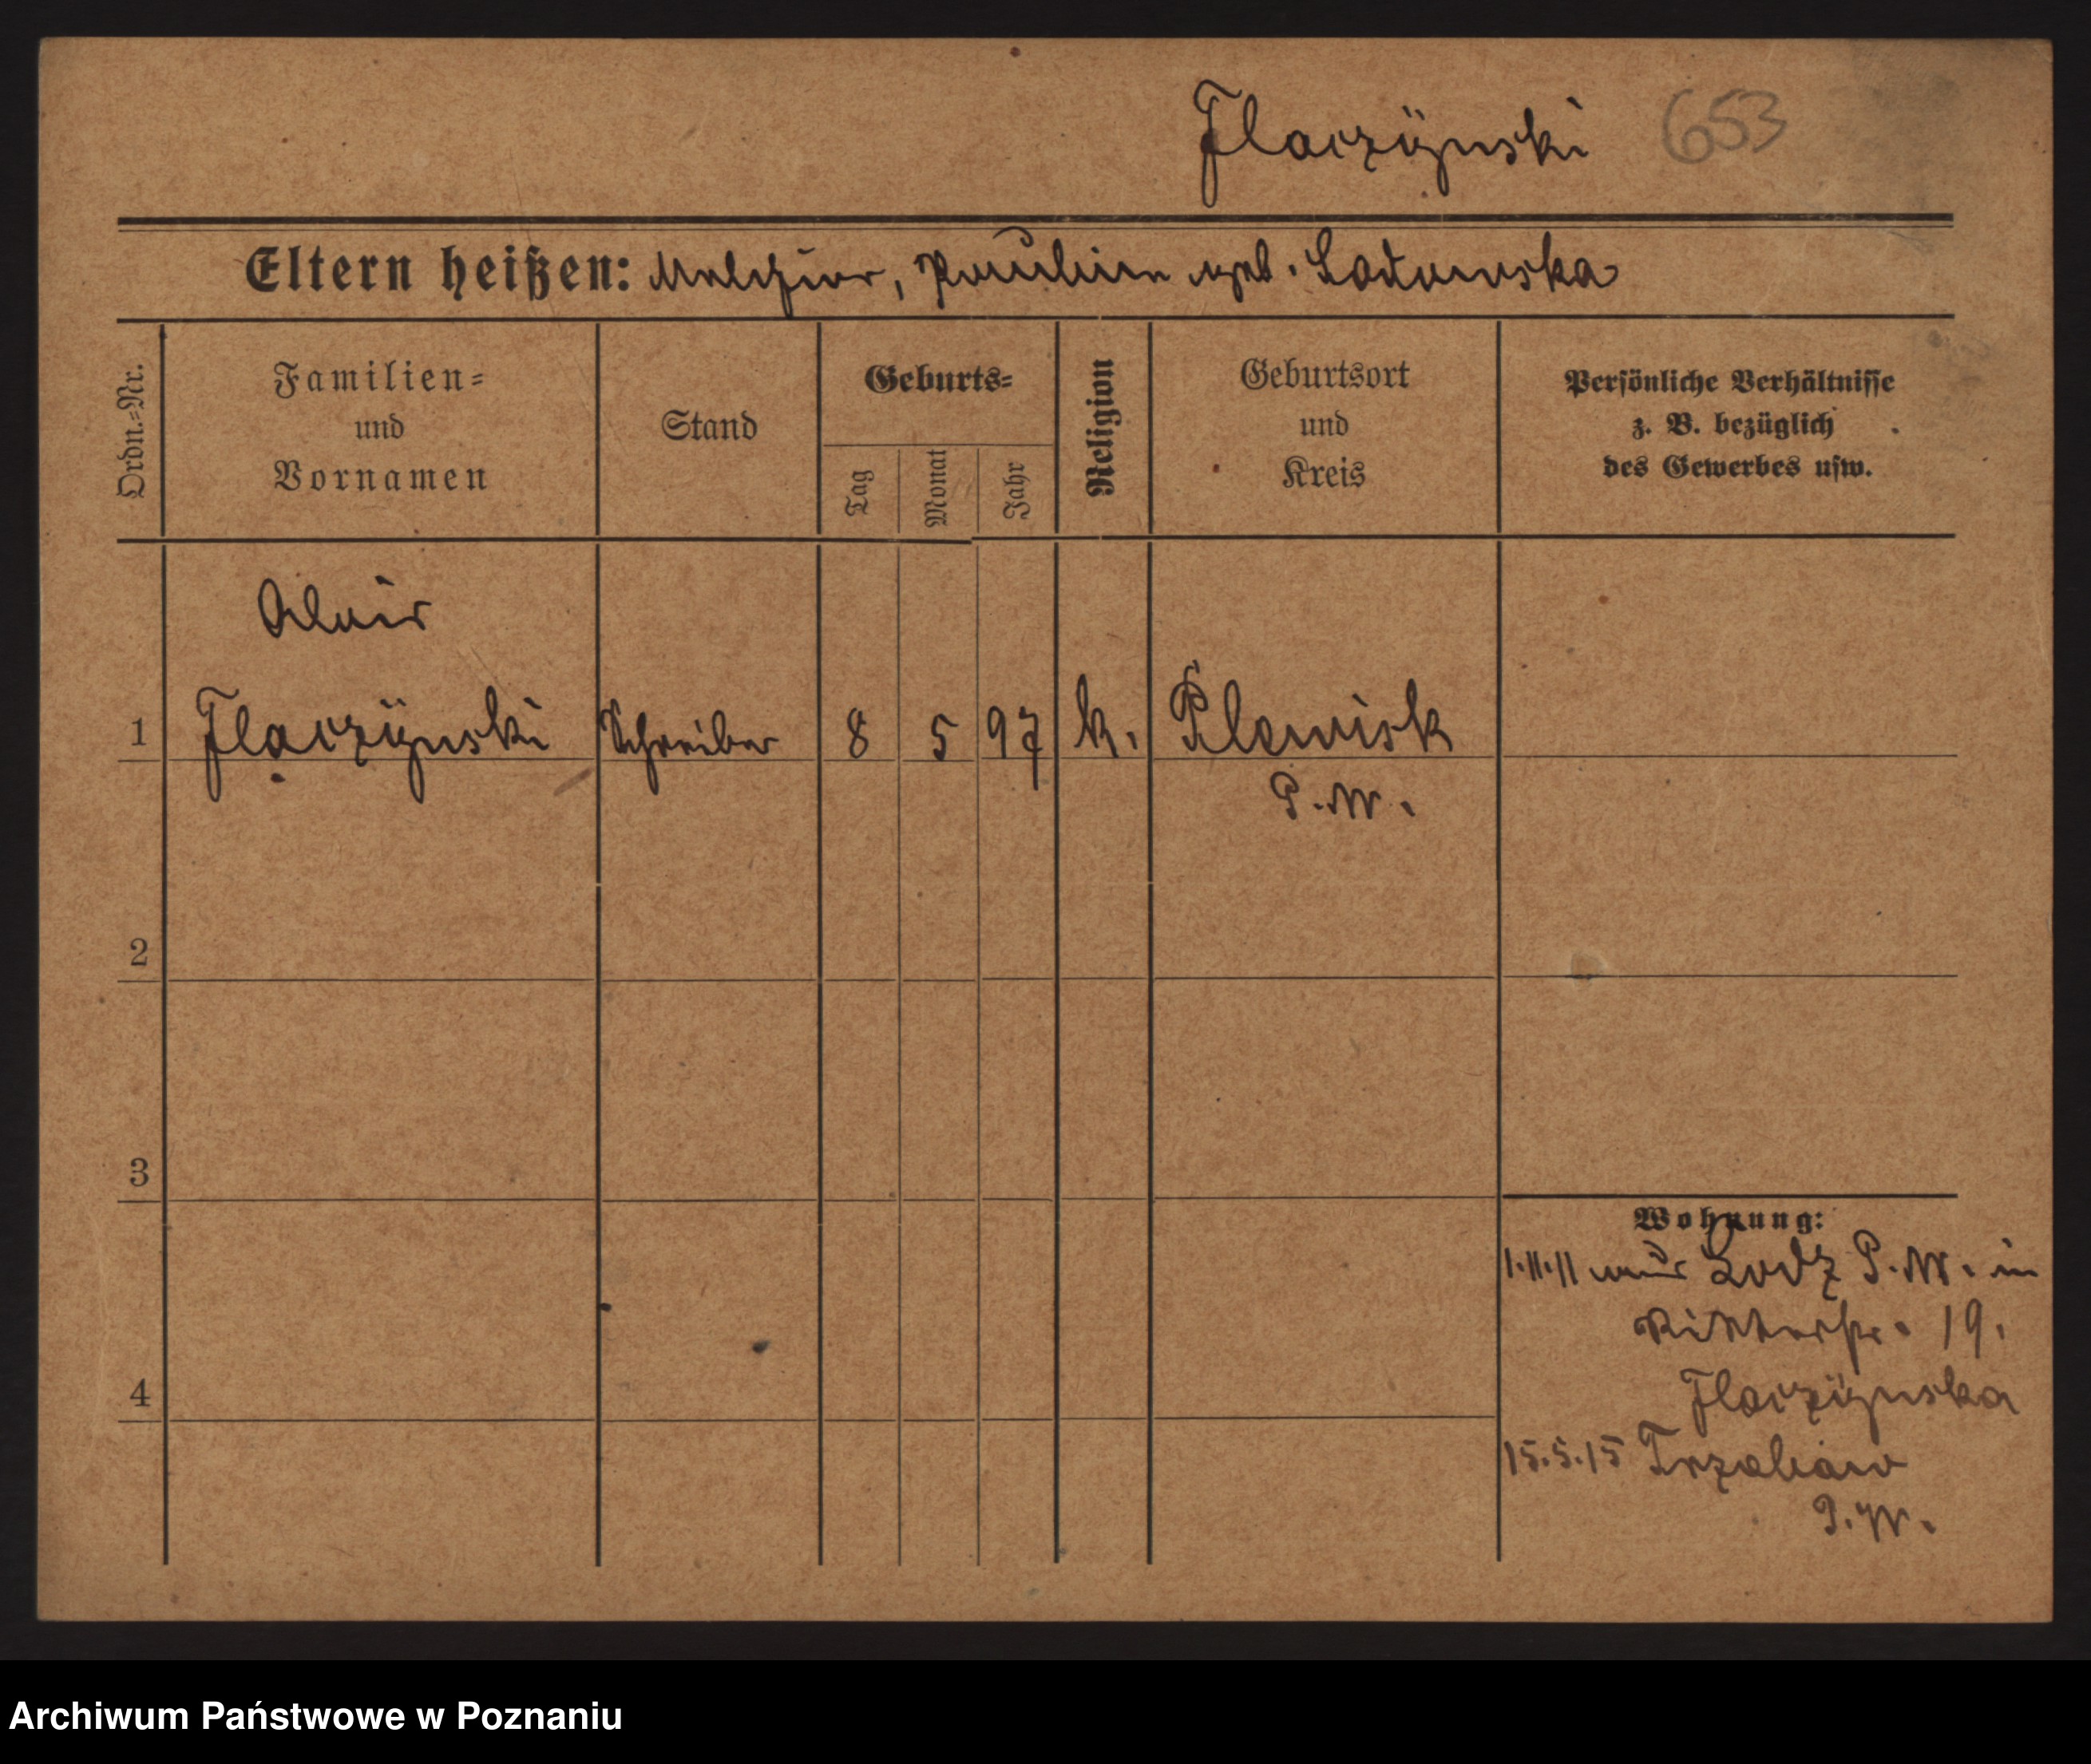 Flaczÿnski 653
Eltern heißen: Melchior, Pauline geb. Sadowska
Ordn.=Nr.
Familien=
und
Vornamen
Stand
Geburts=
Tag
Monat
Jahr
Religion
Geburtsort
und
Kreis
Persönliche Verhältnisse
z. B. bezüglich
des Gewerbes usw.
1 Flaczÿnski Schreiber 8 5 97 k.
P. W.
2
3
4
Wohnung:
1.11.11 Lodz P. W. in
Ritterstr. 19.
Flaczÿnska
15.5.15
P. W.
Archiwum Państwowe w Poznaniu